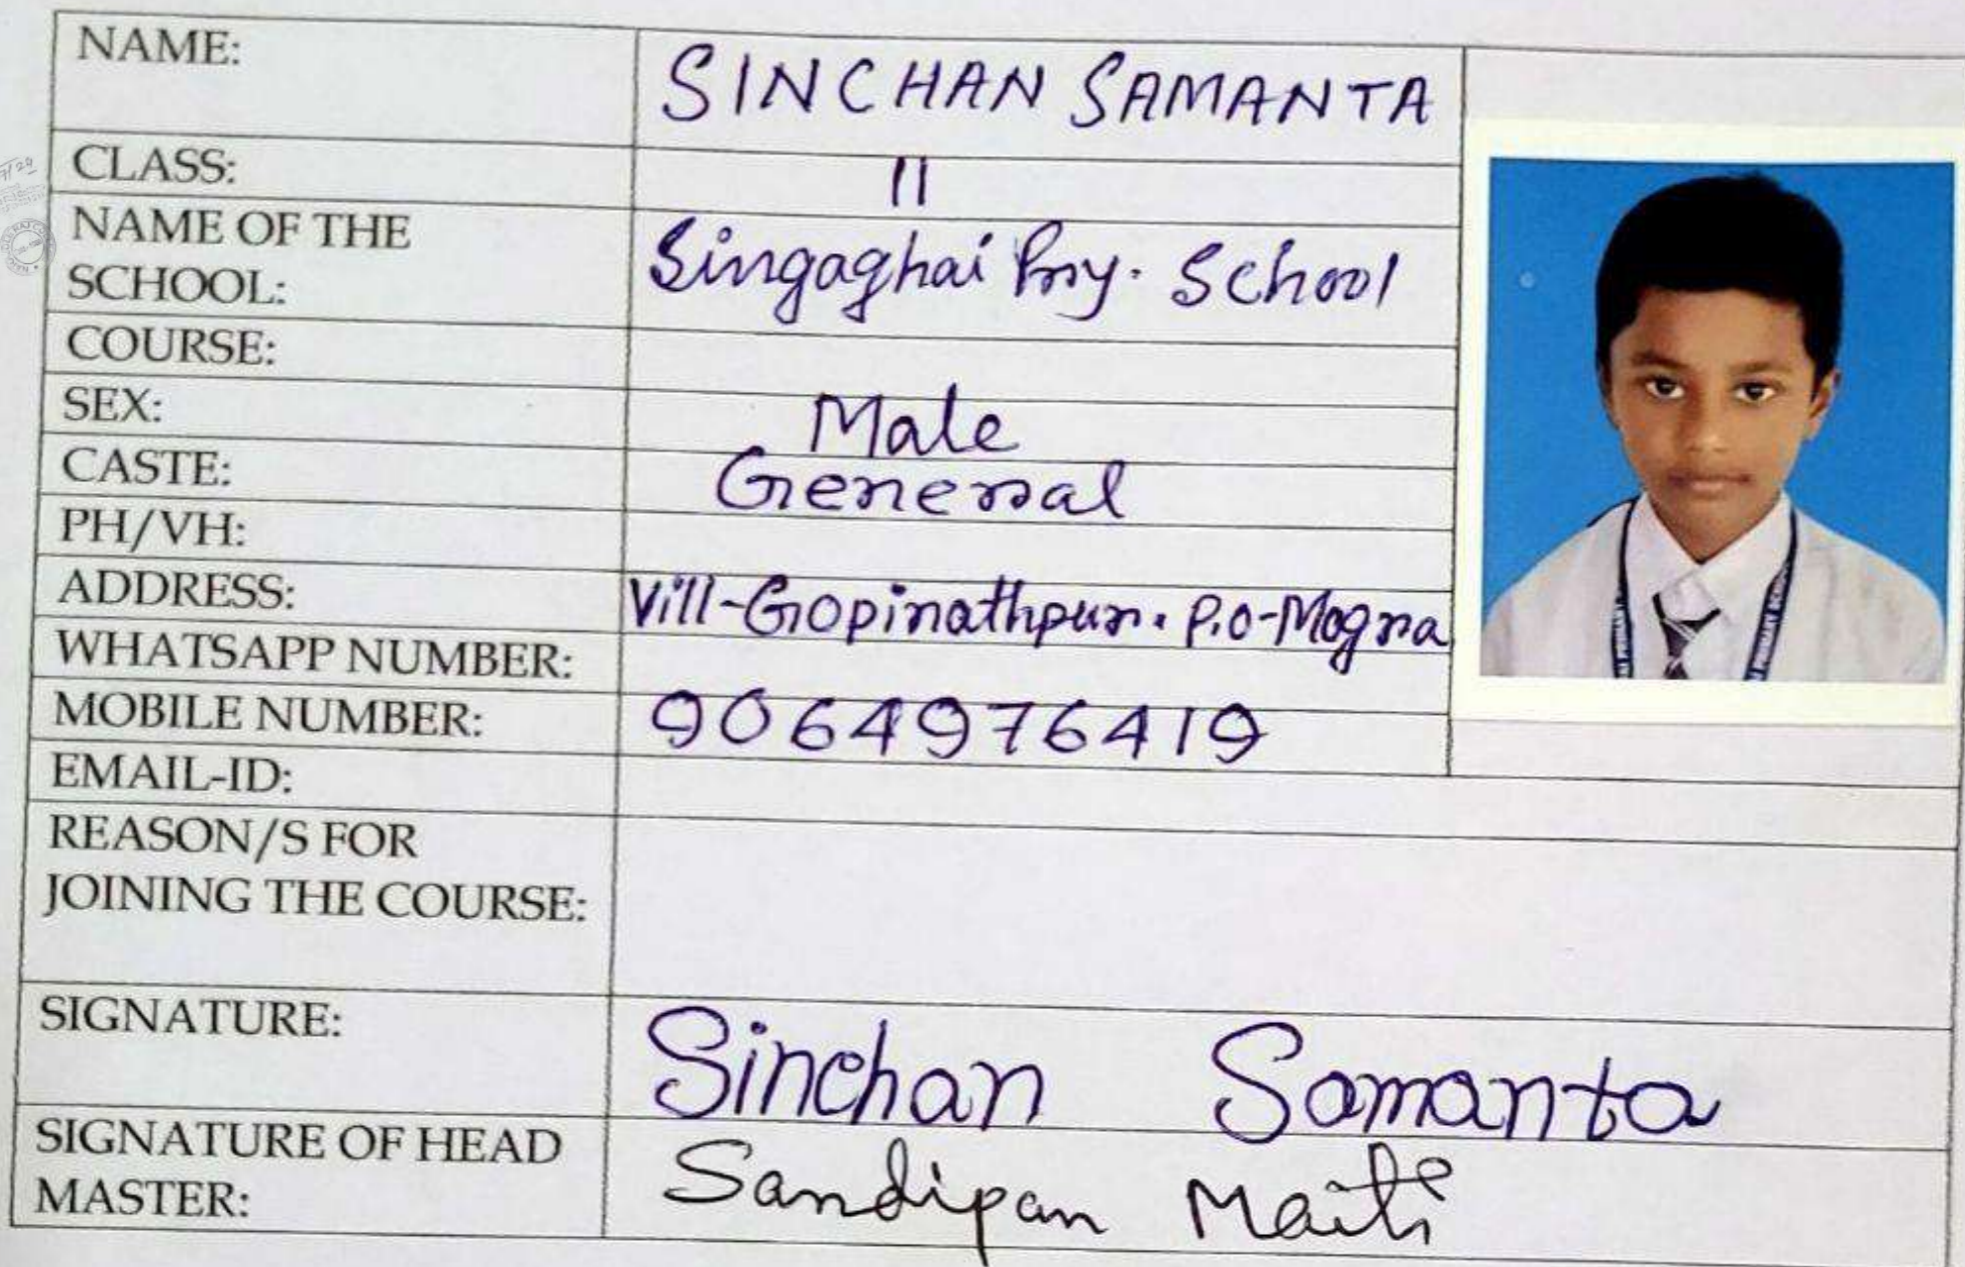 NAME: SINCHAN SAMANTA
CLASS: II
NAME OF THE
SCHOOL: Singaghai Pry. School
COURSE:
SEX: Male
CASTE: General
PH/VH:
ADDRESS: Vill-Gopinathpur. P.O-Mogra
WHATSAPP NUMBER:
MOBILE NUMBER: 9064976419
EMAIL-ID:
REASON/S FOR
JOINING THE COURSE:
SIGNATURE: Sinchan Samanta
SIGNATURE OF HEAD
MASTER: Sandipan Maiti